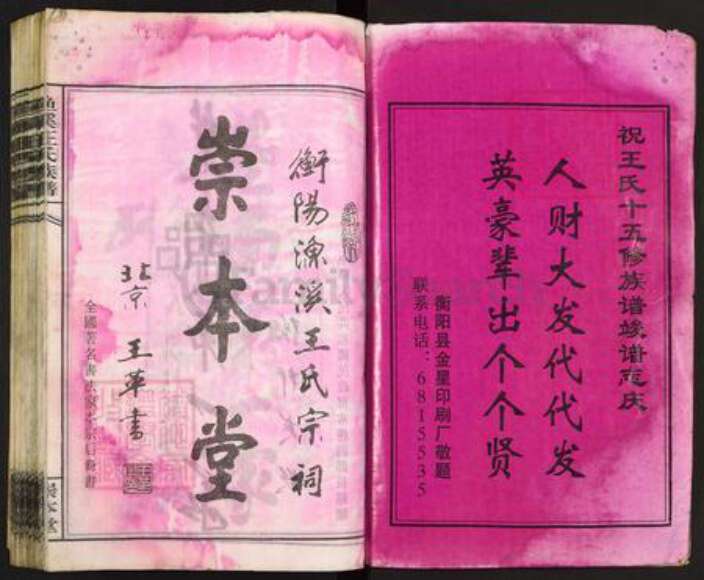 祝王氏十五修族谱竣谱志庆
人财大发代代发
英豪辈出个个贤
衡阳县金星印刷厂敬题
联系电话：6815535
衡陽漁溪王氏宗祠
崇本堂
北京 王革書
漁溪王氏族譜
崇本堂